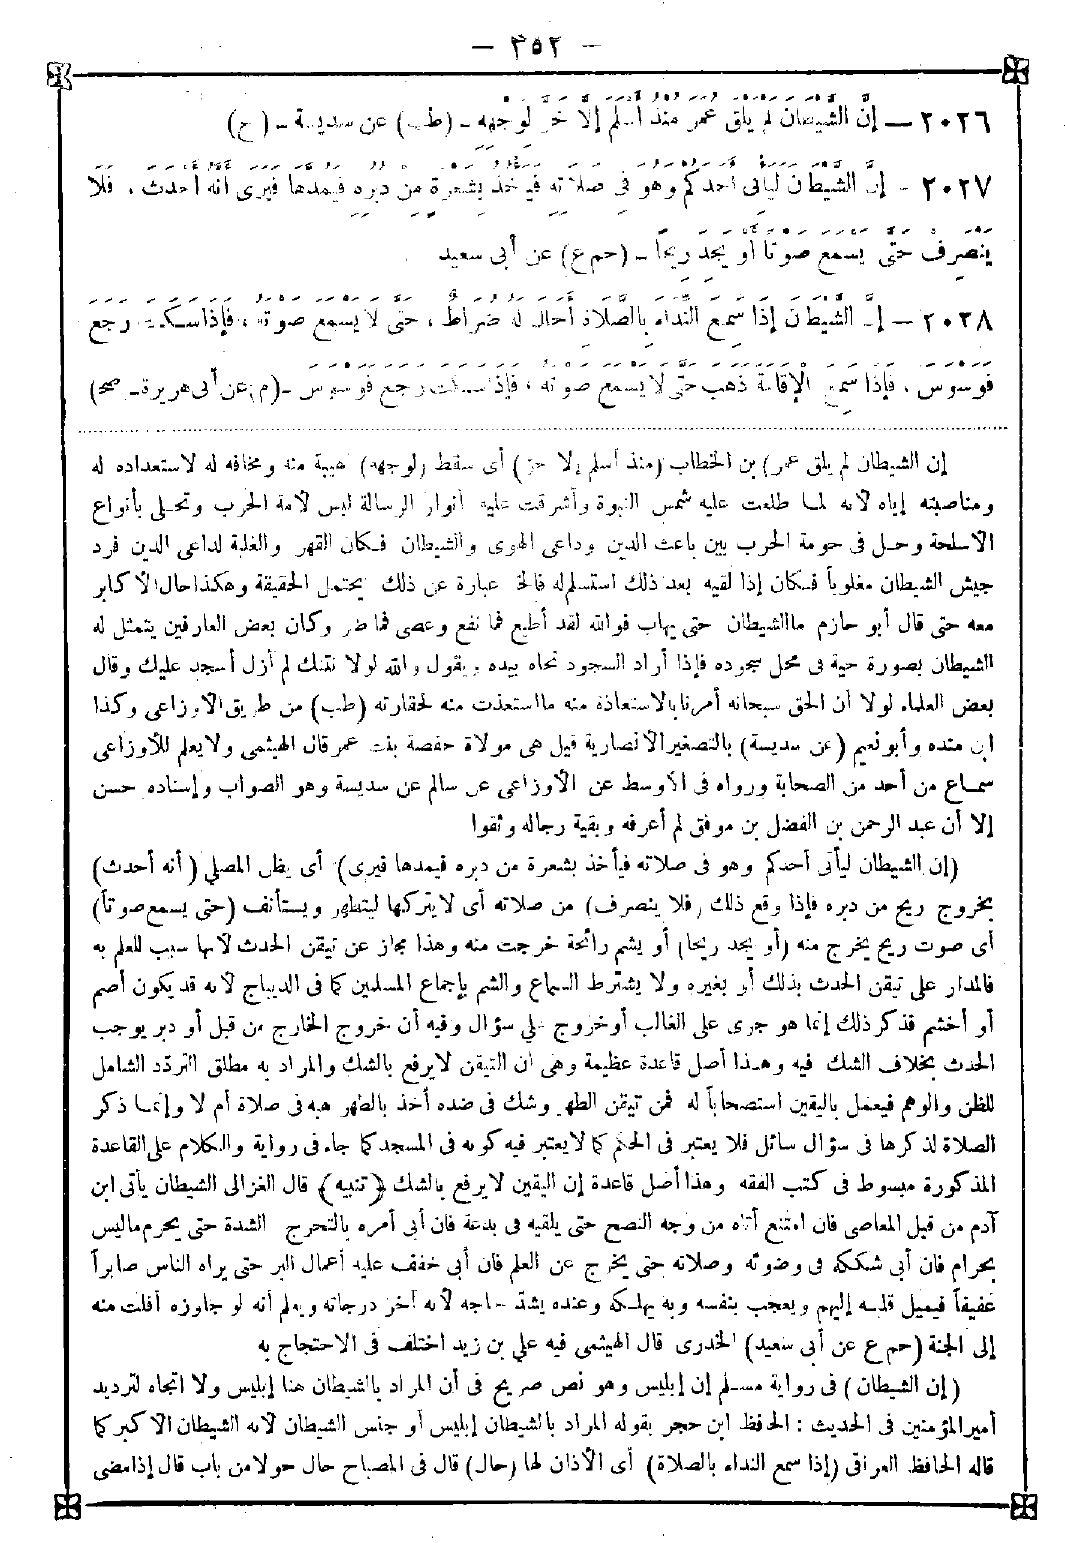 — ٣٥٢ —
٢٠٢٦ — إِنَّ الشَّيْطَانَ لَمْ يَلْقَ عُمَرَ مُنْذُ أَسْلَمَ إِلَّا خَرَّ لِوَجْهِهِ - (طب) عن سديسة - (ح)
٢٠٢٧ - إِنَّ الشَّيْطَانَ لَيَأْتِي أَحَدَكُمْ وَهُوَ فِي صَلَاتِهِ فَيَأْخُذُ بِشَعْرَةٍ مِنْ دُبُرِهِ فَيَمُدُّهَا فَيَرَى أَنَّهُ أَحْدَثَ ، فَلَا
يَنْصَرِفْ حَتَّى يَسْمَعَ صَوْتًا أَوْ يَجِدَ رِيحًا - (حم ع) عن أبى سعيد
٢٠٢٨ — إِنَّ الشَّيْطَانَ إِذَا سَمِعَ النِّدَاءَ بِالصَّلَاةِ أَحَالَ لَهُ ضُرَاطٌ ، حَتَّى لَا يَسْمَعَ صَوْتَهُ ، فَإِذَا سَكَتَ رَجَعَ
فَوَسْوَسَ ، فَإِذَا سَمِعَ الْإِقَامَةَ ذَهَبَ حَتَّى لَا يَسْمَعَ صَوْتَهُ ، فَإِذَا سَكَتَ رَجَعَ فَوَسْوَسَ - (م) عن أبى هريرة - صح)
إن الشيطان لم يلق عمر) بن الخطاب (منذ أسلم إلا خر) أى سقط (لوجهه) هيبة منه ومخافه له لاستعداده له
ومناصبته إياه لأنه لما طلعت عليه شمس النبوة وأشرقت عليه أنوار الرسالة لبس لأمة الحرب وتحلى بأنواع
الأسلحة وحل فى حومة الحرب بين باعث الدين وداعى الهوى والشيطان فكان القهر والغلبة لداعى الدين فرد
جيش الشيطان مغلوباً فكان إذا لقيه بعد ذلك استسلم له فالخر عبارة عن ذلك يحتمل الحقيقة وهكذا حال الأكابر
معه حتى قال أبو حازم ما الشيطان حتى يهاب فوالله لقد أطيع فما نفع وعصى فما ضر وكان بعض العارفين يتمثل له
الشيطان بصورة حية فى محل سجوده فإذا أراد السجود نحاه بيده ويقول والله لولا نتنك لم أزل أسجد عليك وقال
بعض العلماء لولا أن الحق سبحانه أمرنا بالاستعاذة منه ما استعذت منه لحقارته (طب) من طريق الأوزاعى وكذا
ابن منده وأبو نعيم (عن سديسة) بالتصغير الأنصارية قيل هى مولاة حفصة بنت عمر قال الهيثمى ولا يعلم للأوزاعى
سماع من أحد من الصحابة ورواه فى الأوسط عن الأوزاعى عن سالم عن سديسة وهو الصواب وإسناده حسن
إلا أن عبد الرحمن بن الفضل بن موفق لم أعرفه وبقية رجاله وثقوا
(إن الشيطان ليأتى أحدكم وهو فى صلاته فيأخذ بشعرة من دبره فيمدها فيرى) أى يظن المصلى (أنه أحدث)
بخروج ريح من دبره فإذا وقع ذلك (فلا ينصرف) من صلاته أى لا يتركها ليتطهر ويستأنف (حتى يسمع صوتاً)
أى صوت ريح يخرج منه (أو يجد ريحا) أو يشم رائحة خرجت منه وهذا مجاز عن تيقن الحدث لأنها سبب للعلم به
فالمدار على تيقن الحدث بذلك أو بغيره ولا يشترط السماع والشم بإجماع المسلمين كما فى الديباج لأنه قد يكون أصم
أو أخشم فذكر ذلك إنما هو جرى على الغالب أو خروج على سؤال وفيه أن خروج الخارج من قبل أو دبر يوجب
الحدث بخلاف الشك فيه وهذا أصل قاعدة عظيمة وهى أن التيقن لا يرفع بالشك والمراد به مطلق التردّد الشامل
للظن والوهم فيعمل باليقين استصحاباً له فمن تيقن الطهر وشك فى ضده أخذ بالطهر هبه فى صلاة أم لا وإنما ذكر
الصلاة لذكرها فى سؤال سائل فلا يعتبر فى الحكم كما لا يعتبر فيه كونه فى المسجد كما جاء فى رواية والكلام على القاعدة
المذكورة مبسوط فى كتب الفقه وهذا أصل قاعدة إن اليقين لا يرفع بالشك (تنبيه) قال الغزالى الشيطان يأتى ابن
آدم من قبل المعاصى فان امتنع أتاه من وجه النصح حتى يلقيه فى بدعة فان أبى أمره بالتحرج الشدة حتى يحرم ماليس
بحرام فان أبى شككه فى وضوئه وصلاته حتى يخرج عن العلم فان أبى خفف عليه أعمال البر حتى يراه الناس صابراً
عفيفاً فيميل قلبه إليهم ويعجب بنفسه وبه يهلكه وعنده يشتد لجاجه لأنه آخر درجاته ويعلم أنه لو جاوزه أفلت منه
إلى الجنة (حم ع عن أبى سعيد) الخدرى قال الهيثمى فيه على بن زيد اختلف فى الاحتجاج به
(إن الشيطان) فى رواية مسلم إن إبليس وهو نص صريح فى أن المراد بالشيطان هنا إبليس ولا اتجاه لترديد
أمير المؤمنين فى الحديث : الحافظ ابن حجر بقوله المراد بالشيطان إبليس أو جنس الشيطان لأنه الشيطان الأكبر كما
قاله الحافظ العراقى (إذا سمع النداء بالصلاة) أى الأذان لها (حال) قال فى المصباح حال حولا من باب قال إذا مضى